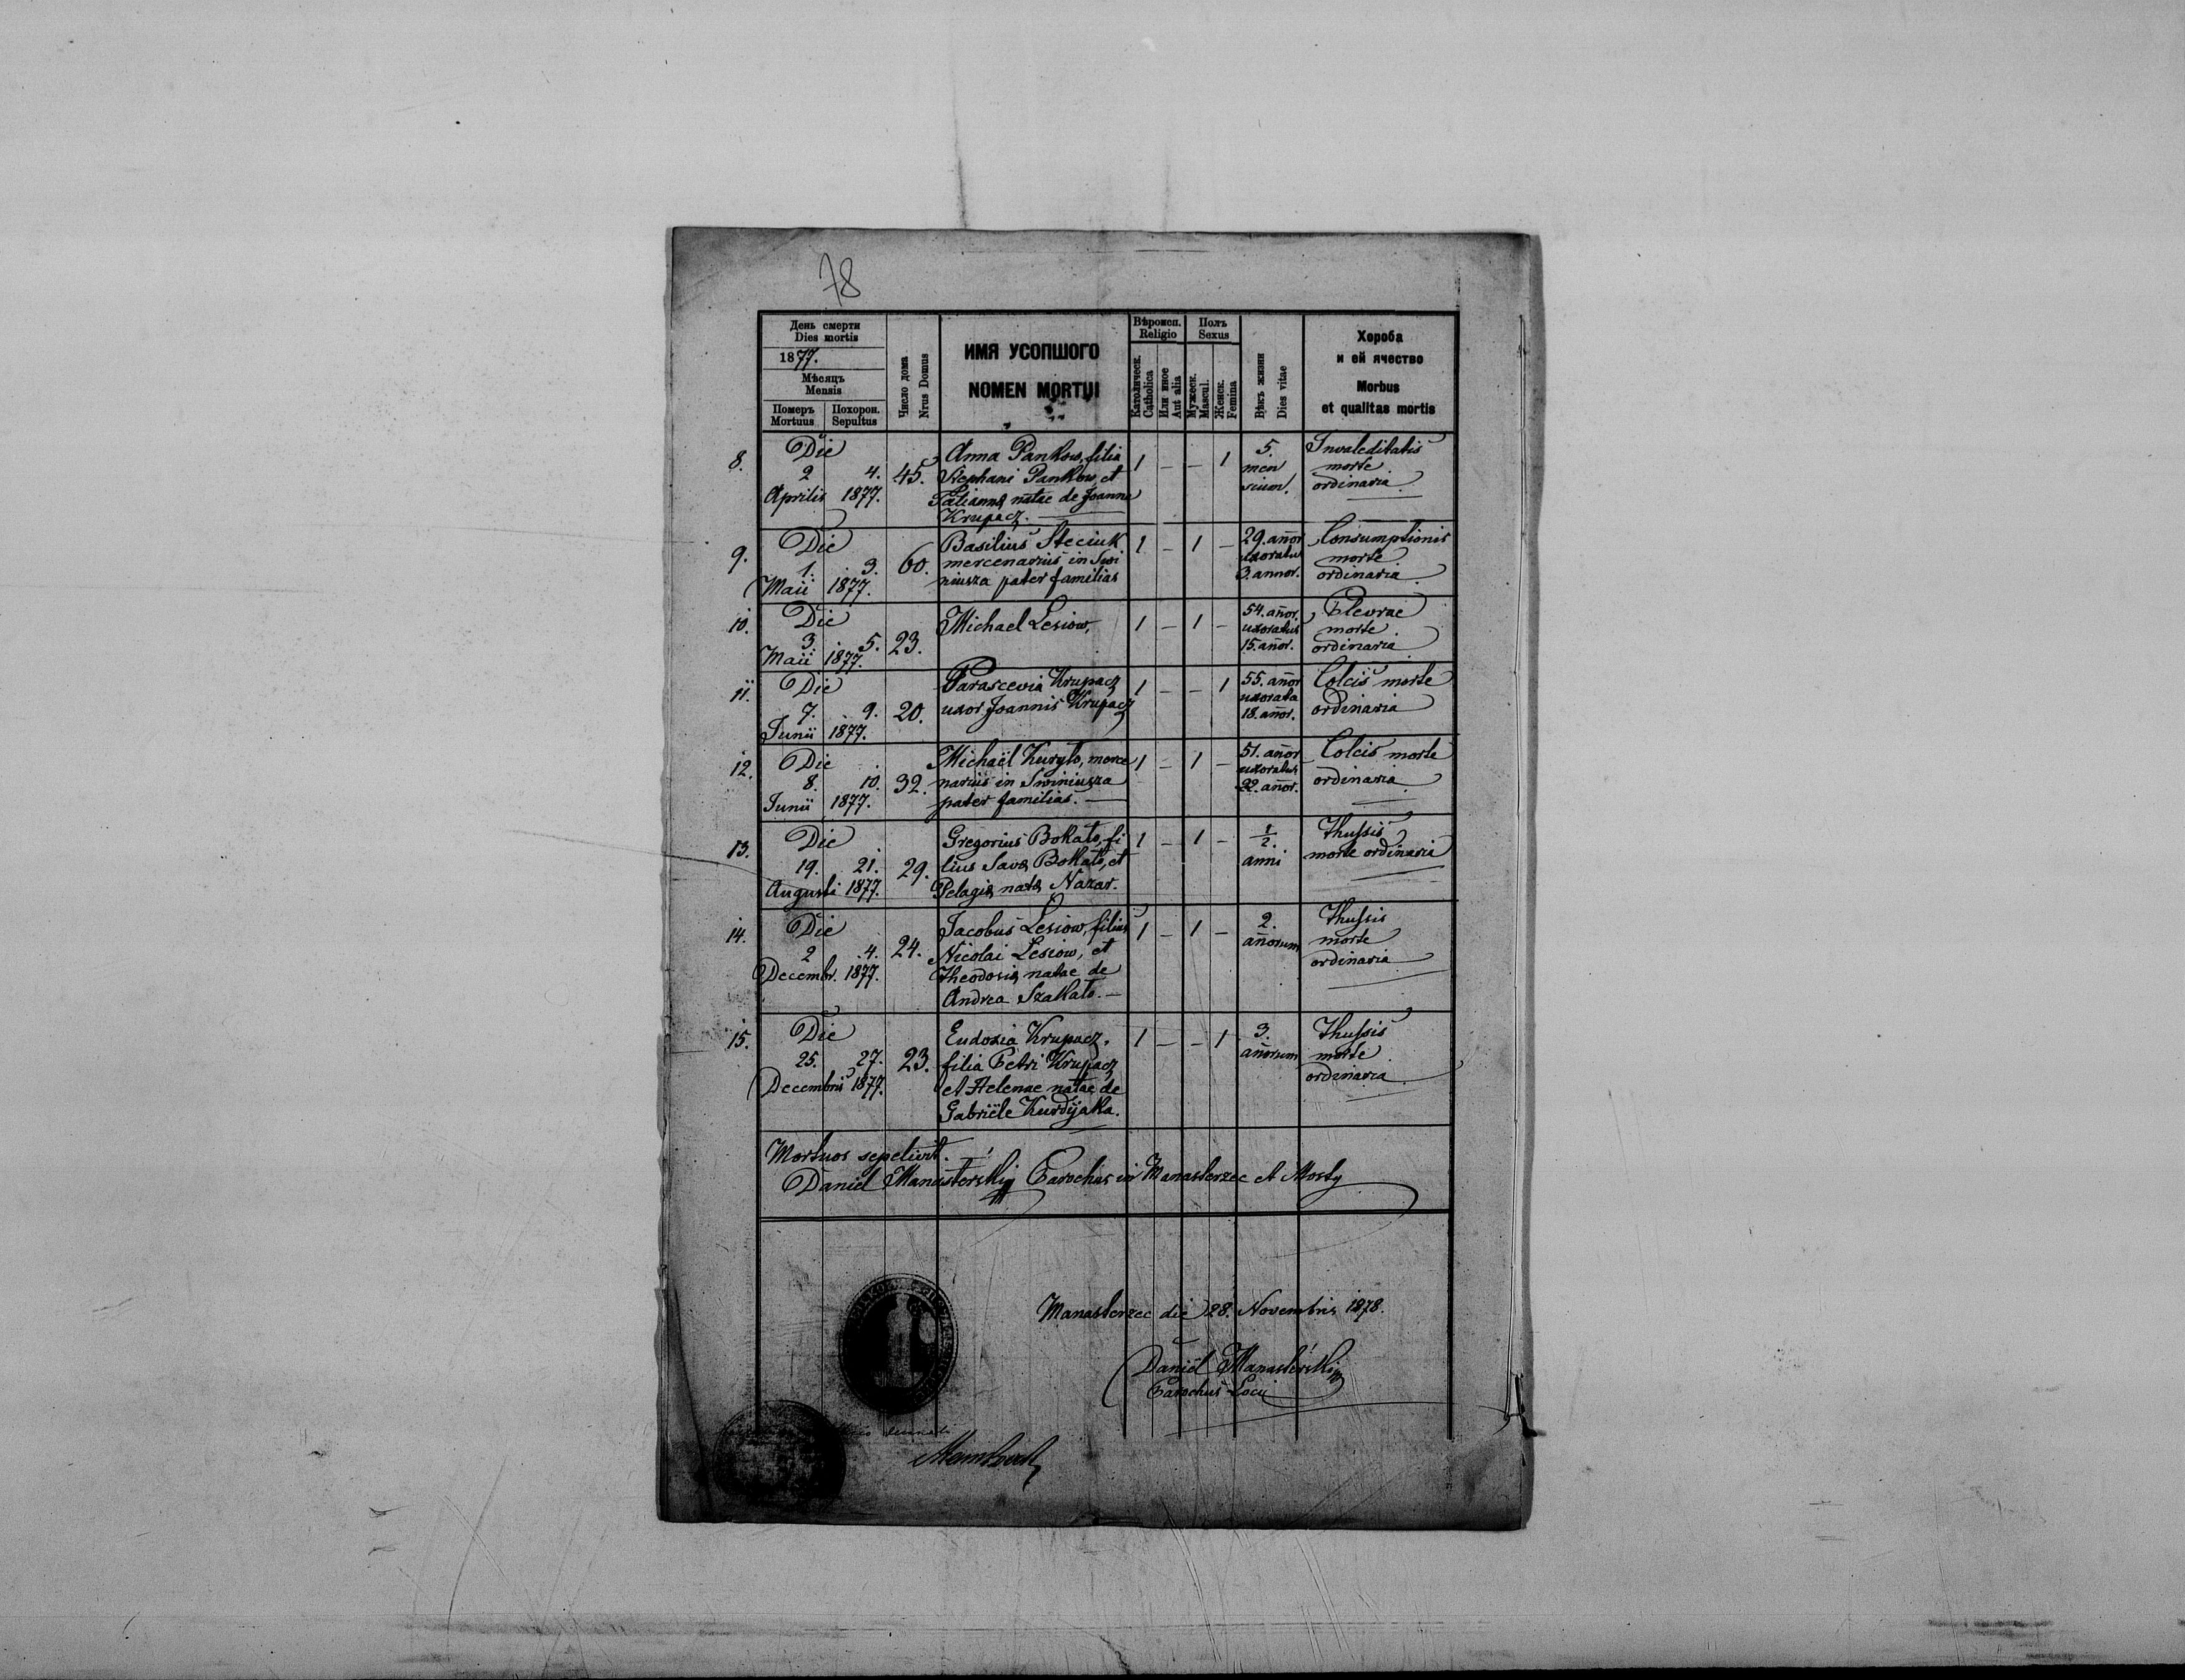 78
День смерти
Dies mortis
1877.
Мѣсяцъ
Mensis
Померъ
Mortuus
Похорон.
Sepultus
Число дома
Nrus Domus
ИМЯ УСОПШОГО
NOMEN MORTUI
Вѣроисп.
Religio
Католическ.
Catholica
Или иное
Aut alia
Полъ
Sexus
Мужеск.
Mascul.
Женск.
Femina
Вѣкъ жизни
Dies vitae
Хороба
и ей ячество
Morbus
et qualitas mortis
8.
Die
2 4.
Aprilis 1877.
45.
Anna Pankow, filia
Stephani Pankow, et
Tatiannę natae de Joanne
Krupacz.
1 – – 1
5.
men
sium.
Invaleditatis
morte
ordinaria.
9.
Die
1. 3.
Maii 1877.
60.
Basilius Steciuk
mercenarius in Swi
niusza pater familias
1 – 1 –
29. añor
uxoratus
3. annor.
Consumptionis
morte
ordinaria.
10.
Die
3. 5.
Maii 1877.
23.
Michael Lesiow,
1 – 1 –
54. añor.
uxoratus
15. añor.
Plevrae
morte
ordinaria.
11.
Die
7. 9.
Junii 1877.
20.
Parascevia Krupacz
uxor Joannis Krupacz
1 – – 1
55. añor
uxorata
18. añor.
Colcis morte
ordinaria
12.
Die
8. 10.
Junii 1877.
32.
Michaël Kuryło, merce
narius in Swiniusza
pater familias.
1 – 1 –
51. añor
uxoratus
22. añor.
Colcis morte
ordinaria.
13.
Die
19. 21.
Augusti 1877.
29.
Gregorius Bokało, fi
lius Savę Bokało, et
Pelagię natę Nazar.
1 – 1 –
1/2.
anni
Thussis
morte ordinaria
14.
Die
2 4.
Decembr. 1877.
24.
Jacobus Lesiow, filius
Nicolai Lesiow, et
Theodosię natae de
Andrea Szakało. –
1 – 1 –
2.
añorum
Thussis
morte
ordinaria
15.
Die
25. 27.
Decembris 1877.
23.
Eudoxia Krupacz,
filia Petri Krupacz
et Helenae natae de
Gabriële Kurdijaka.
1 – – 1
3.
añorum
Thussis
morte
ordinaria.
Mortuos sepelivit.
Daniel Manasterskij Parochus in Manasterzec et Mosty
Manasterzec die 28. Novembris 1878.
Daniël Manasterskij
Parochus Loci